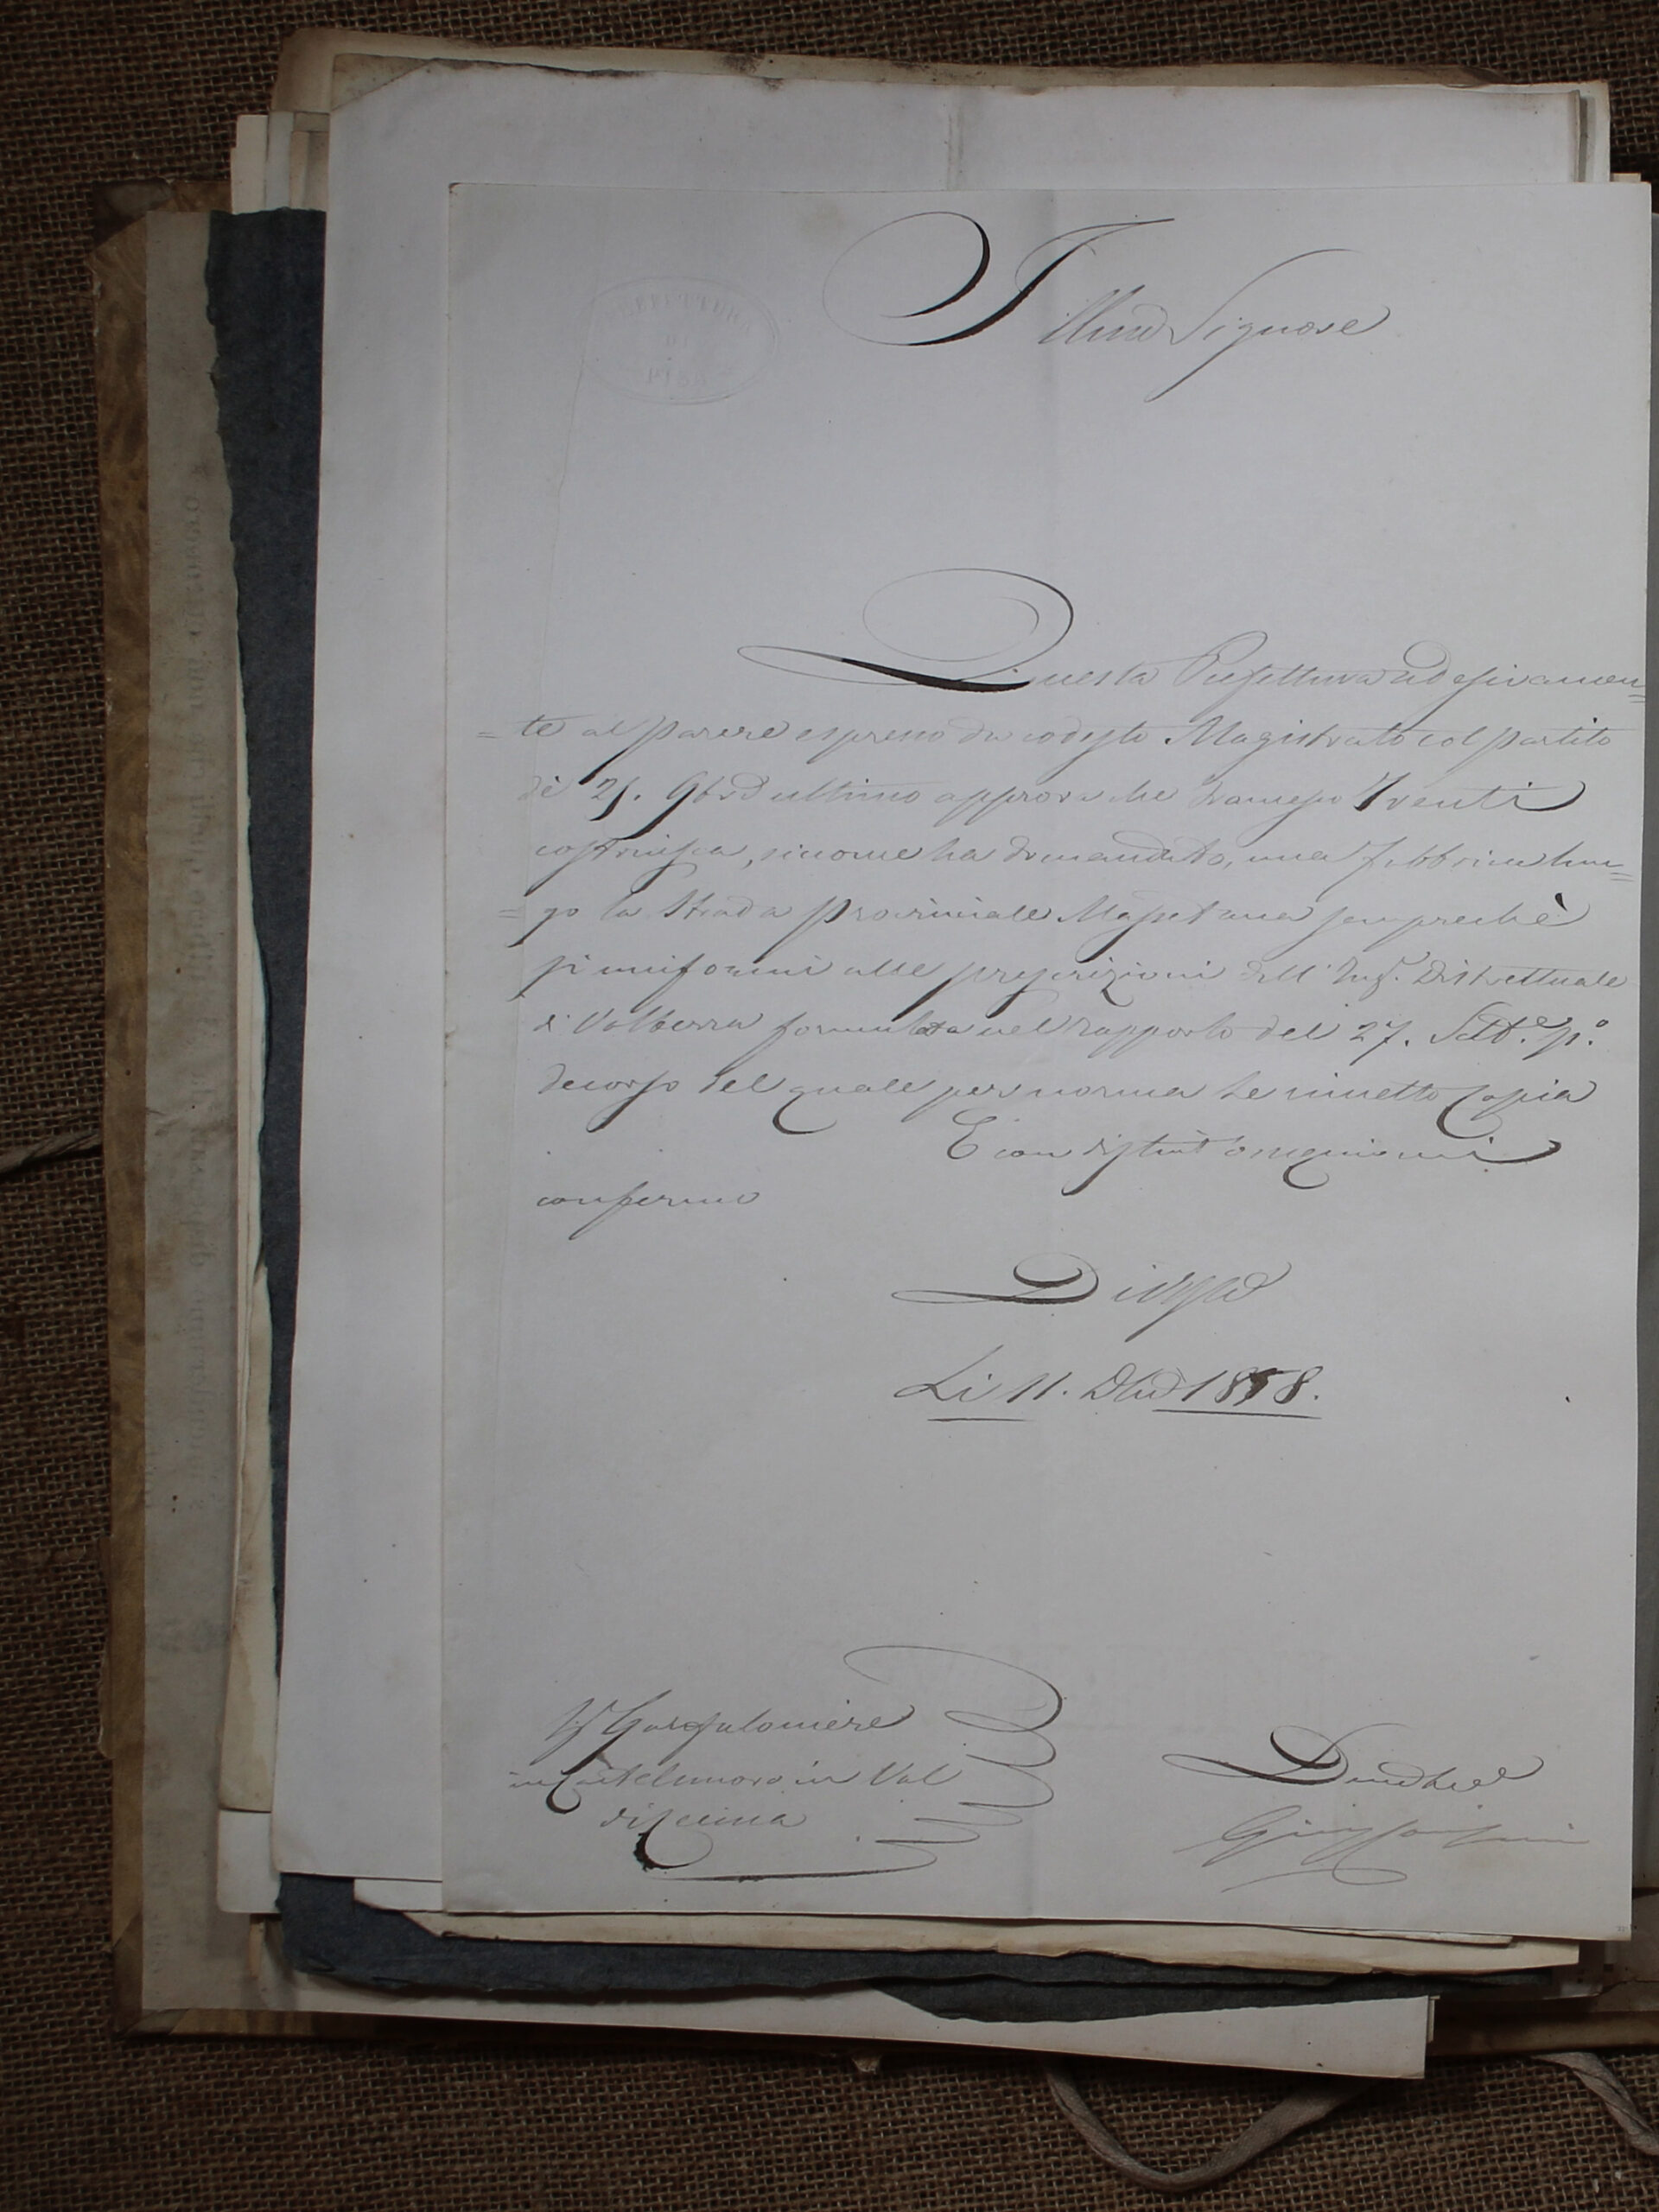 PREFETTURA
DI
PISA
Illmo Signore
Questa Prefettura adesivamen=
=te al parere espresso da codesto Magistrato col partito
de 25. 9bre ultimo approva che Francesco
costruisca, siccome ha domandato, una fabbrica lun=
=go la Strada Provinciale Massetana sempreché
si uniformi alle prescrizioni dell' Ing.e Distrettuale
di Volterra formulata nel rapporto del 27. Sett.e p.o
decorso del quale per norma Le rimetto Copia
E con distint' ossequio mi
confermo
Di VSIllma
Li 11. Xbre 1858.
Gonfaloniere
in Castelnuovo in Val
di Cecina